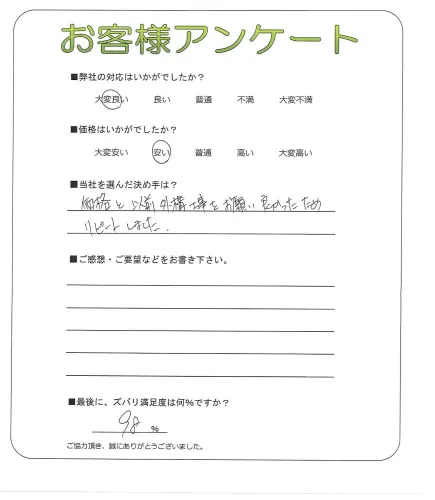 お客様アンケート
■弊社の対応はいかがでしたか？
大変良い 良い 普通 不満 大変不満
■価格はいかがでしたか？
大変安い 安い 普通 高い 大変高い
■当社を選んだ決め手は？
価格と以前外構工事をお願い良かったため
リピートしました.
■ご感想・ご要望などをお書き下さい。
■最後に、ズバリ満足度は何%ですか？
98 %
ご協力頂き、誠にありがとうございました。